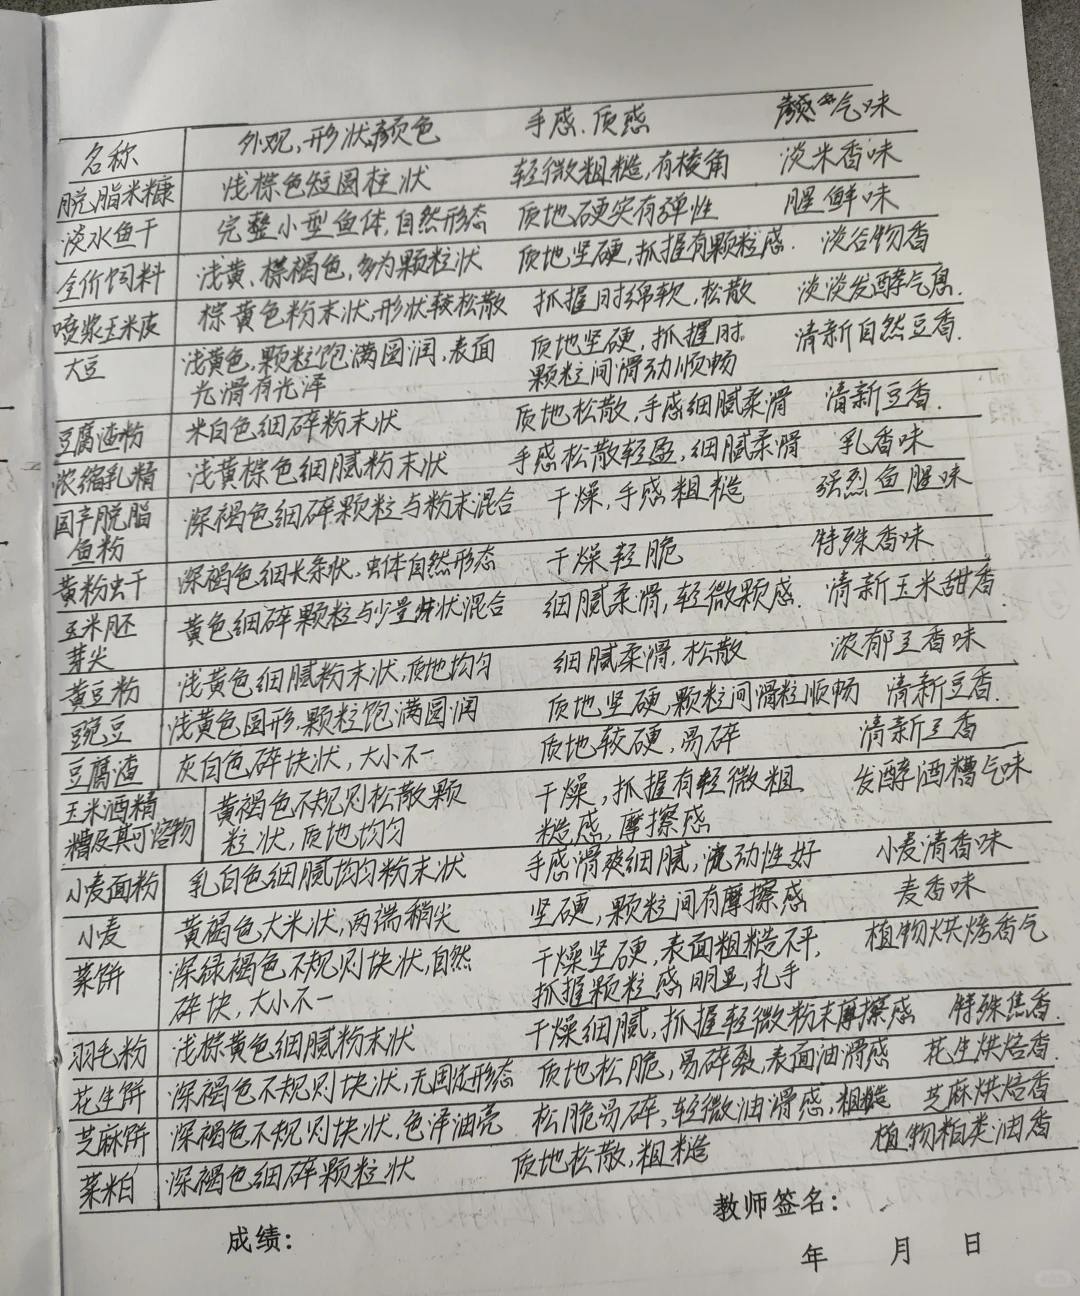 名称 外观、形状颜色 手感、质感 气味
脱脂米糠 浅棕色短圆柱状 轻微粗糙,有棱角 淡米香味
淡水鱼干 完整小型鱼体,自然形态 质地硬实有弹性 腥鲜味
全价饲料 浅黄、棕褐色,多为颗粒状 质地坚硬,抓握有颗粒感. 淡谷物香
喷浆玉米皮 棕黄色粉末状,形状较松散 抓握时绵软,松散 淡淡发酵气息.
大豆 浅黄色,颗粒饱满圆润,表面 质地坚硬,抓握时. 清新自然豆香.
光滑有光泽 颗粒间滑动顺畅
豆腐渣粉 米白色细碎粉末状 质地松散,手感细腻柔滑 清新豆香.
浓缩乳精 浅黄棕色细腻粉末状 手感松散轻盈,细腻柔滑 乳香味
国产脱脂 深褐色细碎颗粒与粉末混合 干燥,手感粗糙 强烈鱼腥味
鱼粉
黄粉虫干 深褐色细长条状,虫体自然形态 干燥轻脆 特殊香味
玉米胚 黄色细碎颗粒与少量状混合 细腻柔滑,轻微颗感. 清新玉米甜香.
芽尖
黄豆粉 浅黄色细腻粉末状,质地均匀 细腻柔滑,松散 浓郁豆香味
豌豆 浅黄色圆形,颗粒饱满圆润 质地坚硬,颗粒间滑粒顺畅 清新豆香.
豆腐渣 灰白色碎块状,大小不一 质地较硬,易碎 清新豆香
玉米酒精 黄褐色不规则松散颗 干燥,抓握有轻微粗 发酵酒糟气味
糟及其可溶物 粒状,质地均匀 糙感,摩擦感
小麦面粉 乳白色细腻均匀粉末状 手感滑爽细腻,流动性好 小麦清香味
小麦 黄褐色大米状,两端稍尖 坚硬,颗粒间有摩擦感 麦香味
菜饼 深绿褐色不规则块状,自然 干燥坚硬,表面粗糙不平, 植物烘烤香气
碎块,大小不一 抓握颗粒感明显,扎手
羽毛粉 浅棕黄色细腻粉末状 干燥细腻,抓握轻微粉末摩擦感 特殊焦香.
花生饼 深褐色不规则块状,无固定形态 质地松脆,易碎裂,表面油滑感 花生烘焙香.
芝麻饼 深褐色不规则块状,色泽油亮 松脆易碎,轻微油滑感,粗糙 芝麻烘焙香
菜粕 深褐色细碎颗粒状 质地松散,粗糙 植物粕类油香
教师签名:
成绩:
年 月 日